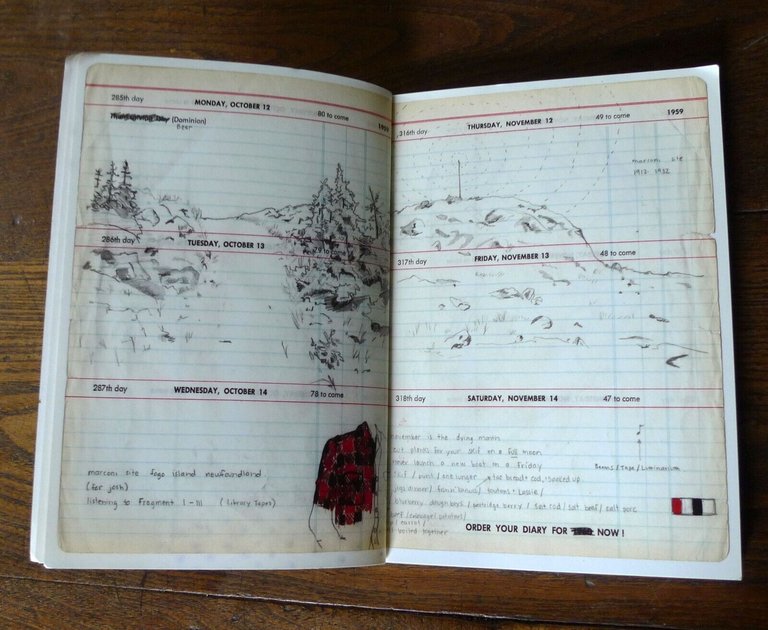 285th day MONDAY, OCTOBER 12 80 to come 1959
Thanksgiving Day (Dominion)
Beer
286th day TUESDAY, OCTOBER 13 79 to come
287th day WEDNESDAY, OCTOBER 14 78 to come
marconi site fogo island newfoundland.
(for josh)
listening to Fragment I - III (Library Tapes)
316th day THURSDAY, NOVEMBER 12 49 to come 1959
marconi site
1912-1932
317th day FRIDAY, NOVEMBER 13 48 to come
318th day SATURDAY, NOVEMBER 14 47 to come
november is the dying month
cut planks for your skif on a full moon
never launch a new boat on a friday
Beans / Tape / Luminarium
skif / punt / one lunger
jigs dinner / / toutons + Lassie /
blueberry doughboys / partridge berry / salt cod / salt beef / salt porc
/ cabbage / potatoes /
/ carrot /
boiled together
ORDER YOUR DIARY FOR NOW !